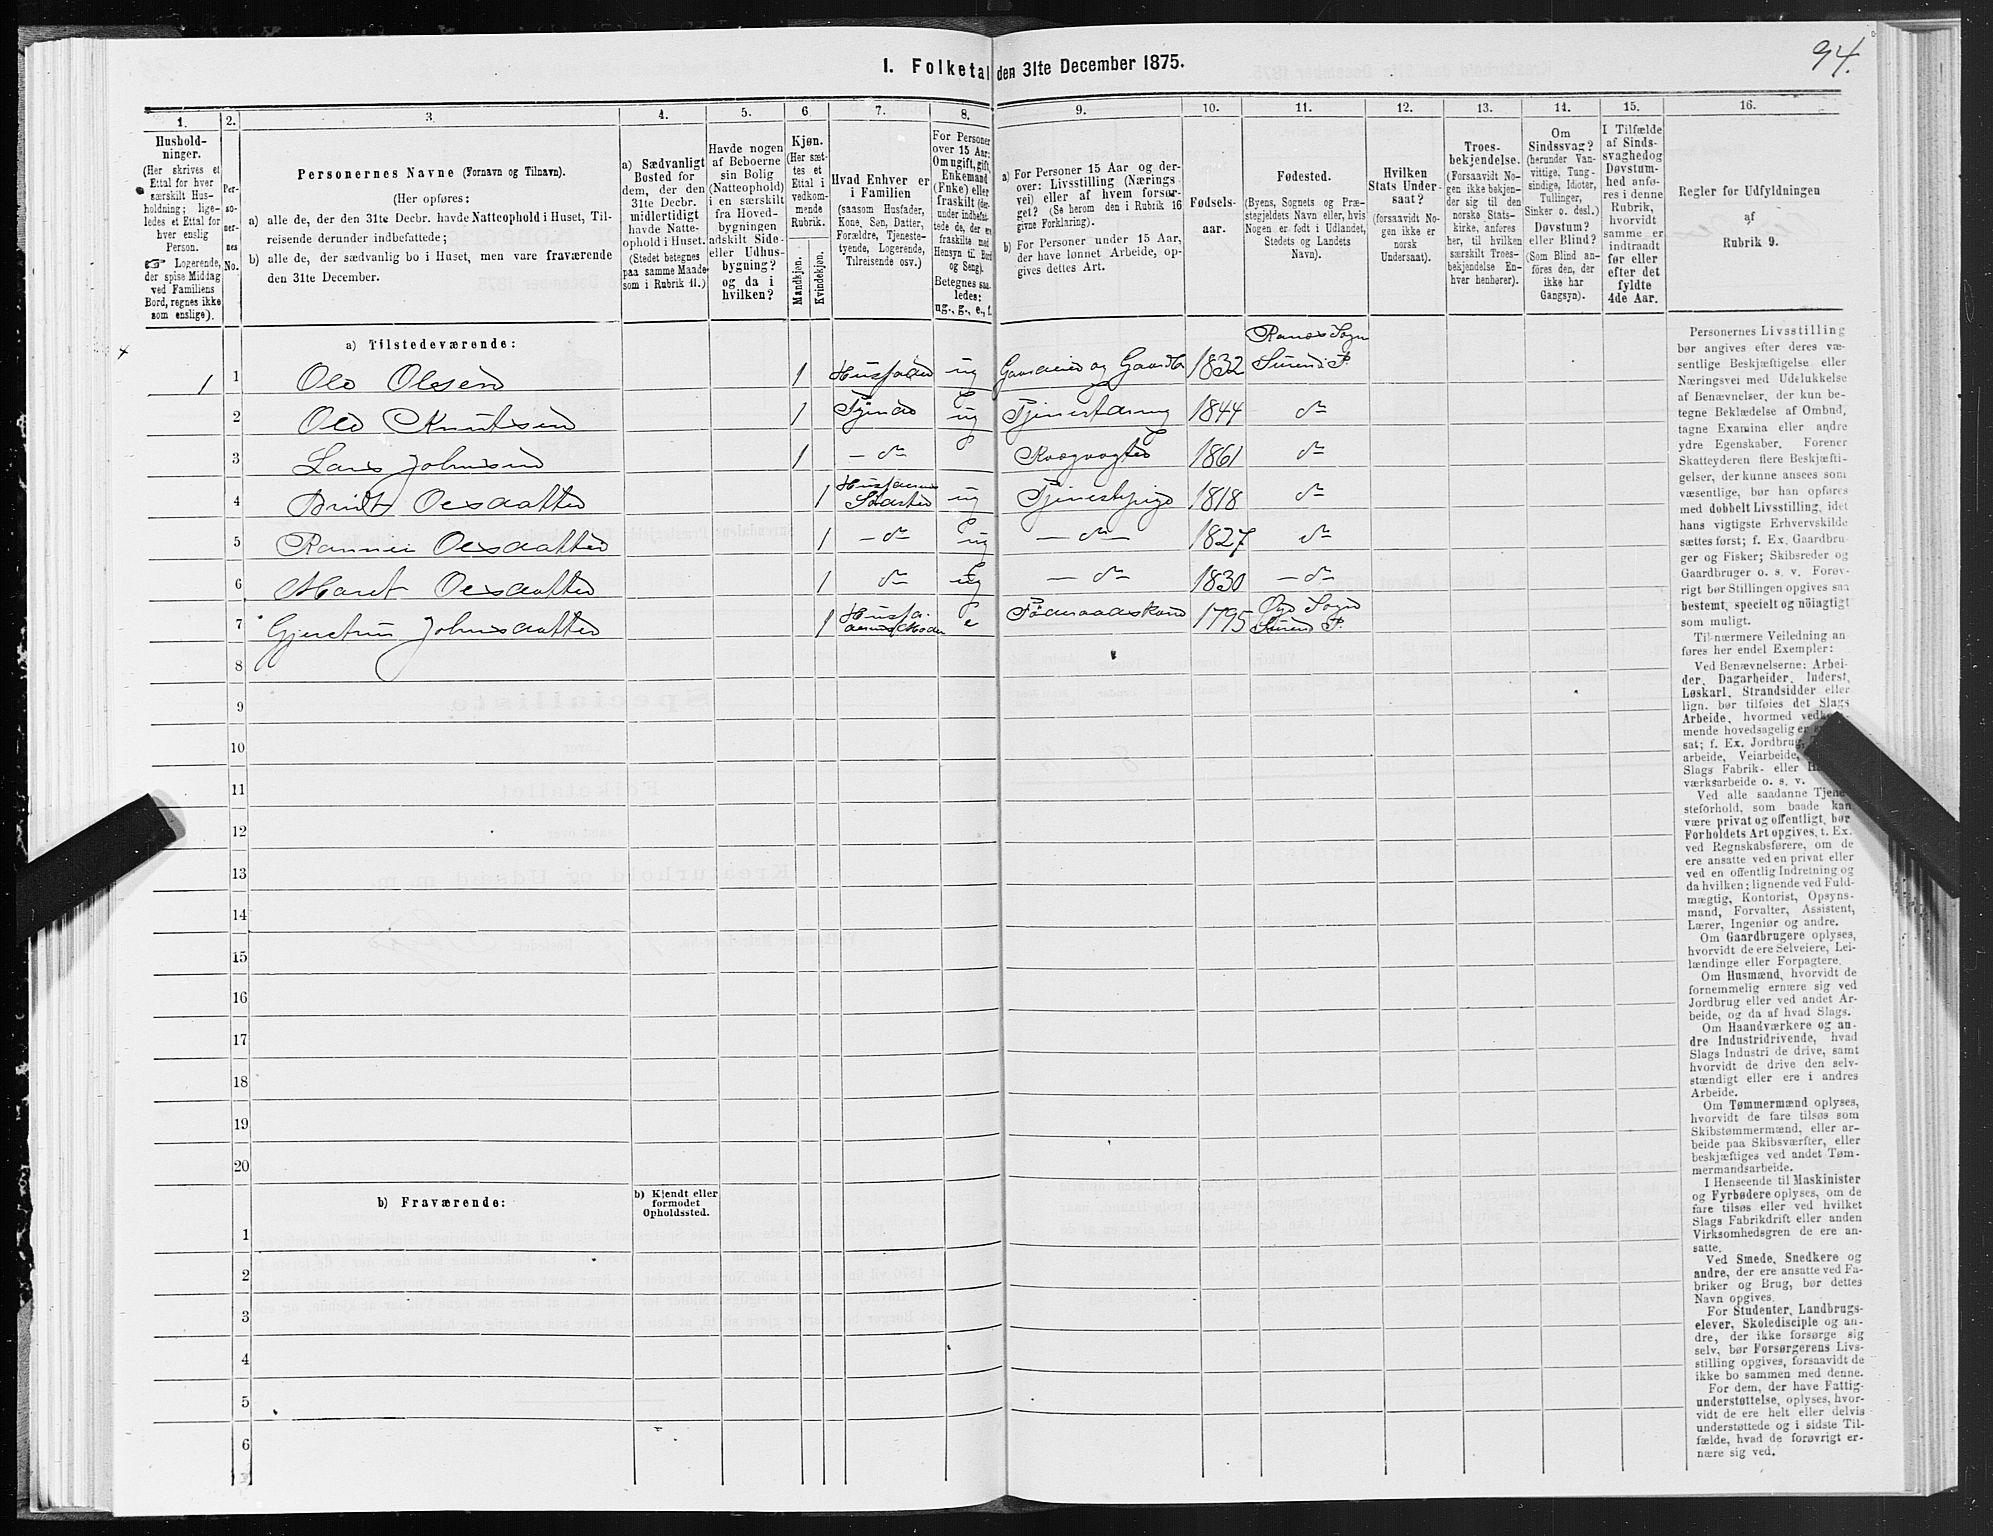 94.
I. Folketal den 31te December 1875.
1. 2. 3. 4. 5. 6 7. 8. 9. 10. 11. 12. 13. 14. 15. 16.
Hushold-
ninger.
(Her skrives et
Ettal for hver
særskilt Hus-
holdning; lige-
ledes et Ettal for
hver enslig
Person.
☞ Logerende,
der spise Middag
ved Familiens
Bord, regnes ikke
som enslige).
Per-
so-
ner-
nes
No.
Personernes Navne (Fornavn og Tilnavn).
(Her opføres:
a) alle de, der den 31te Decbr. havde Natteophold i Huset, Til-
reisende derunder indbefattede;
b) alle de, der sædvanlig bo i Huset, men vare fraværende
den 31te December.
a) Sædvanligt
Bosted for
dem, der den
31te Decbr.
midlertidigt
havde Natte-
ophold i Huset.
(Stedet betegnes
paa samme Maade
som i Rubrik 11.)
Havde nogen
af Beboerne
sin Bolig
(Natteophold)
i en særskilt
fra Hoved-
bygningen
adskilt Side-
eller Udhus-
bygning?
og da i
hvilken?
Kjøn.
(Her sæt-
tes et
Ettal i
vedkom-
mende
Rubrik.
Mandkjøn.
Kvindekjøn.
Hvad Enhver er
i Familien
(saasom Husfader,
Kone, Søn, Datter,
Forældre, Tjeneste-
tyende, Logerende,
Tilreisende osv.)
For Personer
over 15 Aar:
Om ugift, gift,
Enkemand
(Enke) eller
fraskilt (der-
under indbefat-
tede de, der ere
fraskilte med
Hensyn til Bord
og Seng).
Betegnes saa-
ledes:
ug., g., e., f.
a) For Personer 15 Aar og der-
over: Livsstilling (Nærings
vei) eller af hvem forsør-
get? (Se herom den i Rubrik 16
givne Forklaring).
b) For Personer under 15 Aar,
der have lønnet Arbeide, op-
gives dettes Art.
Fødsels-
aar.
Fødested.
(Byens, Sognets og Præ-
stegjeldets Navn eller, hvis
Nogen er født i Udlandet,
Stedets og Landets
Navn).
Hvilken
Stats Under-
saat?
(forsaavidt No-
gen ikke er
norsk
Undersaat).
Troes-
bekjendelse.
(Forsaavidt No-
gen ikke bekjen-
der sig til den
norske Stats-
kirke, anføres
her, til hvilken
særskilt Troes-
bekjendelse En-
hver henhører).
Om
Sindssvag?
(herunder Van-
vittige, Tung-
sindige, Idioter,
Tullinger,
Sinker o. desl.)
Døvstum?
eller Blind?
(Som Blind an-
føres den, der
ikke har
Gangsyn).
I Tilfælde
af Sinds-
svaghedog
Døvstum-
hed anfø-
res i denne
Rubrik,
hvorvidt
samme er
indtraadt
før eller
efter det
fyldte
4de Aar.
Regler for Udfyldningen
af
Rubrik 9.
a) Tilstedeværende:
1 1 Ole Olesen 1 Husfader ug 1832 Ranes Sogn Surend. P.
2 Ole Knutsen 1 ug 1844 do
3 Lars Johnsen 1 - do 1861 do
4 Olesdatter 1 ug 1818 do
5 Olesdatter 1 - do ug - do - 1827 do
6 Maret Olesdatter 1 do ug - do 1830 - do
7 Johnsdatter 1 e 1795 Sogn Surend. P.
8
9
10
11
12
13
14
15
16
17
18
19
20
b) Fraværende:
b) Kjendt eller
formodet
Opholdssted.
1
2
3
4
5
6
Personernes Livsstilling
bør angives efter deres væ-
sentlige Beskjæftigelse eller
Næringsvei med Udelukkelse
af Benævnelser, der kun be-
tegne Beklædelse af Ombud,
tagne Examina eller andre
ydre Egenskaber. Forener
Skatteyderen flere Beskjæfti-
gelser, der kunne ansees som
væsentlige, bør han opføres
med dobbelt Livsstilling, idet
hans vigtigste Erhvervskilde
sættes først; f. Ex. Gaardbru-
ger og Fisker; Skibsreder og
Gaardbruger o. s. v. Forøv-
rigt bør Stillingen opgives saa
bestemt, specielt og nøiagtigt
som muligt.
Til nærmere Veiledning an-
føres her endel Exempler:
Ved Benævnelserne: Arbei-
der, Dagarbeider, Inderst,
Løskarl, Strandsidder eller
lign. bør tilføies det Slags
Arbeide, hvormed
mende hovedsagelig er
sat; f. Ex. Jordbrug,
arbeide, Veiarbeide,
Slags Fabrik- eller
værksarbeide o. s. v.
Ved alle saadanne Tjene-
steforhold, som baade kan
være privat og offentligt, bør
Forholdets Art opgives, t. Ex.
ved Regnskabsførere, om de
ere ansatte ved en privat eller
ved en offentlig Indretning og
da hvilken; lignende ved Fuld-
mægtig, Kontorist, Opsyns-
mand, Forvalter, Assistent,
Lærer, Ingeniør og andre.
Om Gaardbrugere oplyses,
hvorvidt de ere Selveiere, Lei-
lændinge eller Forpagtere.
Om Husmænd, hvorvidt de
fornemmelig ernære sig ved
Jordbrug eller ved andet Ar-
beide, og da af hvad Slags.
Om Haandværkere og an-
dre Industridrivende, hvad
Slags Industri de drive, samt
hvorvidt de drive den selv-
stændigt eller ere i andres
Arbeide.
Om Tømmermænd oplyses,
hvorvidt de fare tilsøs som
Skibstømmermænd, eller ar-
beide paa Skibsværfter, eller
beskjæftiges ved andet Tøm-
mermandsarbeide.
I Henseende til Maskinister
og Fyrbødere oplyses, om de
fare tilsøs eller ved hvilket
Slags Fabrikdrift eller anden
Virksomhedsgren de ere an-
satte.
Ved Smede, Snedkere og
andre, der ere ansatte ved Fa-
briker og Brug, bør dettes
Navn opgives.
For Studenter, Landbrugs-
elever, Skoledisciple og an-
dre, der ikke forsørge sig
selv, bør Forsørgerens Livs-
stilling opgives, forsaavidt de
ikke bo sammen med denne.
For dem, der have Fattig-
understøttelse, oplyses, hvor-
vidt de ere helt eller delvis
understøttede og i sidste Til-
fælde, hvad de forøvrigt er-
nære sig ved.